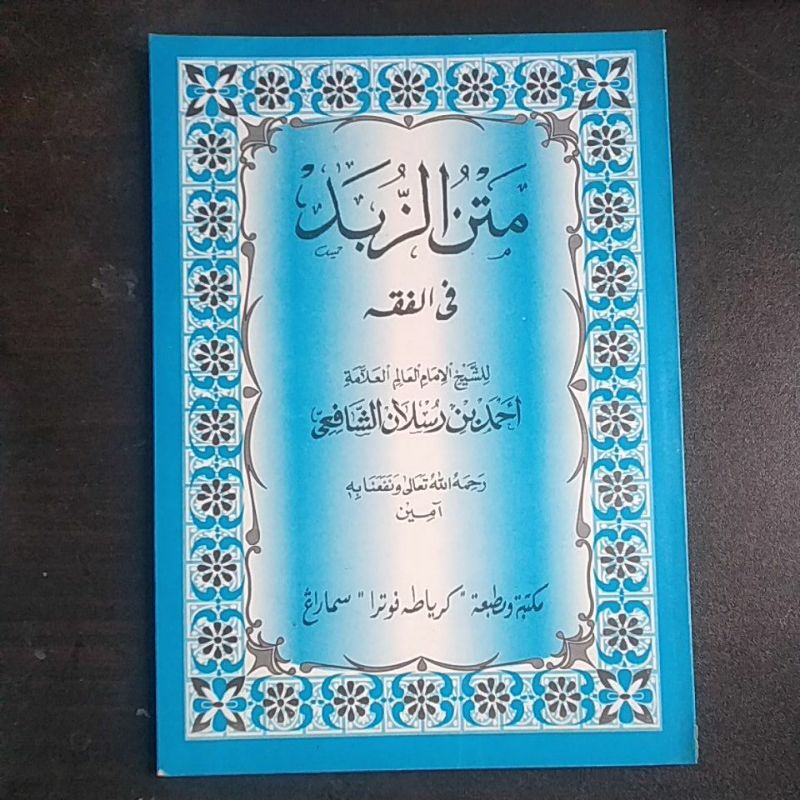 مَتْنُ الزُّبَدْ
فى الفقه
لِلشَّيْخِ الإِمَامِ العَالِمِ العَلاَّمَةِ
أَحْمَدَ بْنِ رُسْلَانَ الشَّافِعِيِّ
رَحِمَهُ اللهُ تَعَالَى وَنَفَعَنَا بِهِ
آمِيْن
مكتبة ومطبعة "كرياطه فوترا" سماراڠ